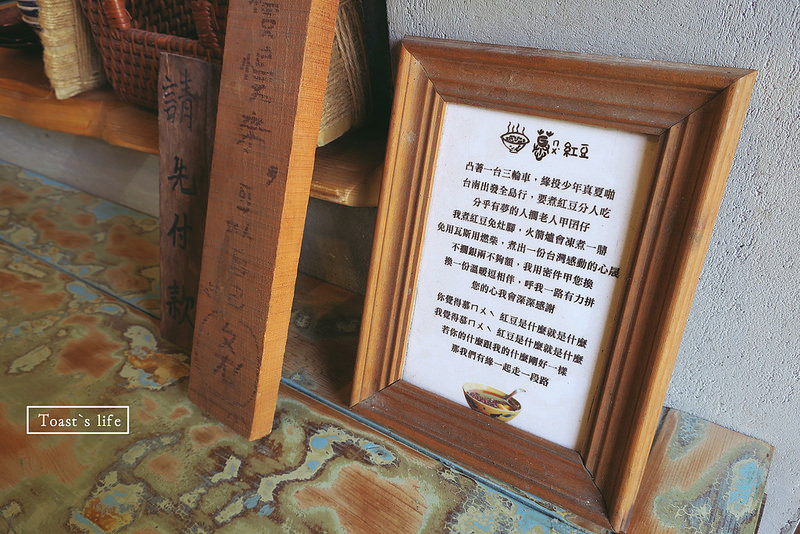 請先付款
慢慢來，
慕ㄇㄨˋ紅豆
凸著一台三輪車，緣投少年真夏啪
台南出發全島行，要煮紅豆分人吃
分乎有夢的人擱老人甲囝仔
我煮紅豆免灶腳，火箭爐會凍煮一鼎
免用瓦斯用燃柴，煮出一份台灣感動的心晟
不擱銀兩不夠額，我用密件甲您換
換一份溫暖逗相伴，呼我一路有力拼
您的心我會深深感謝
你覺得慕ㄇㄨˋ紅豆是什麼就是什麼
我覺得慕ㄇㄨˋ紅豆是什麼就是什麼
若你的什麼跟我的什麼剛好一樣
那我們有緣一起走一段路
Toast`s life